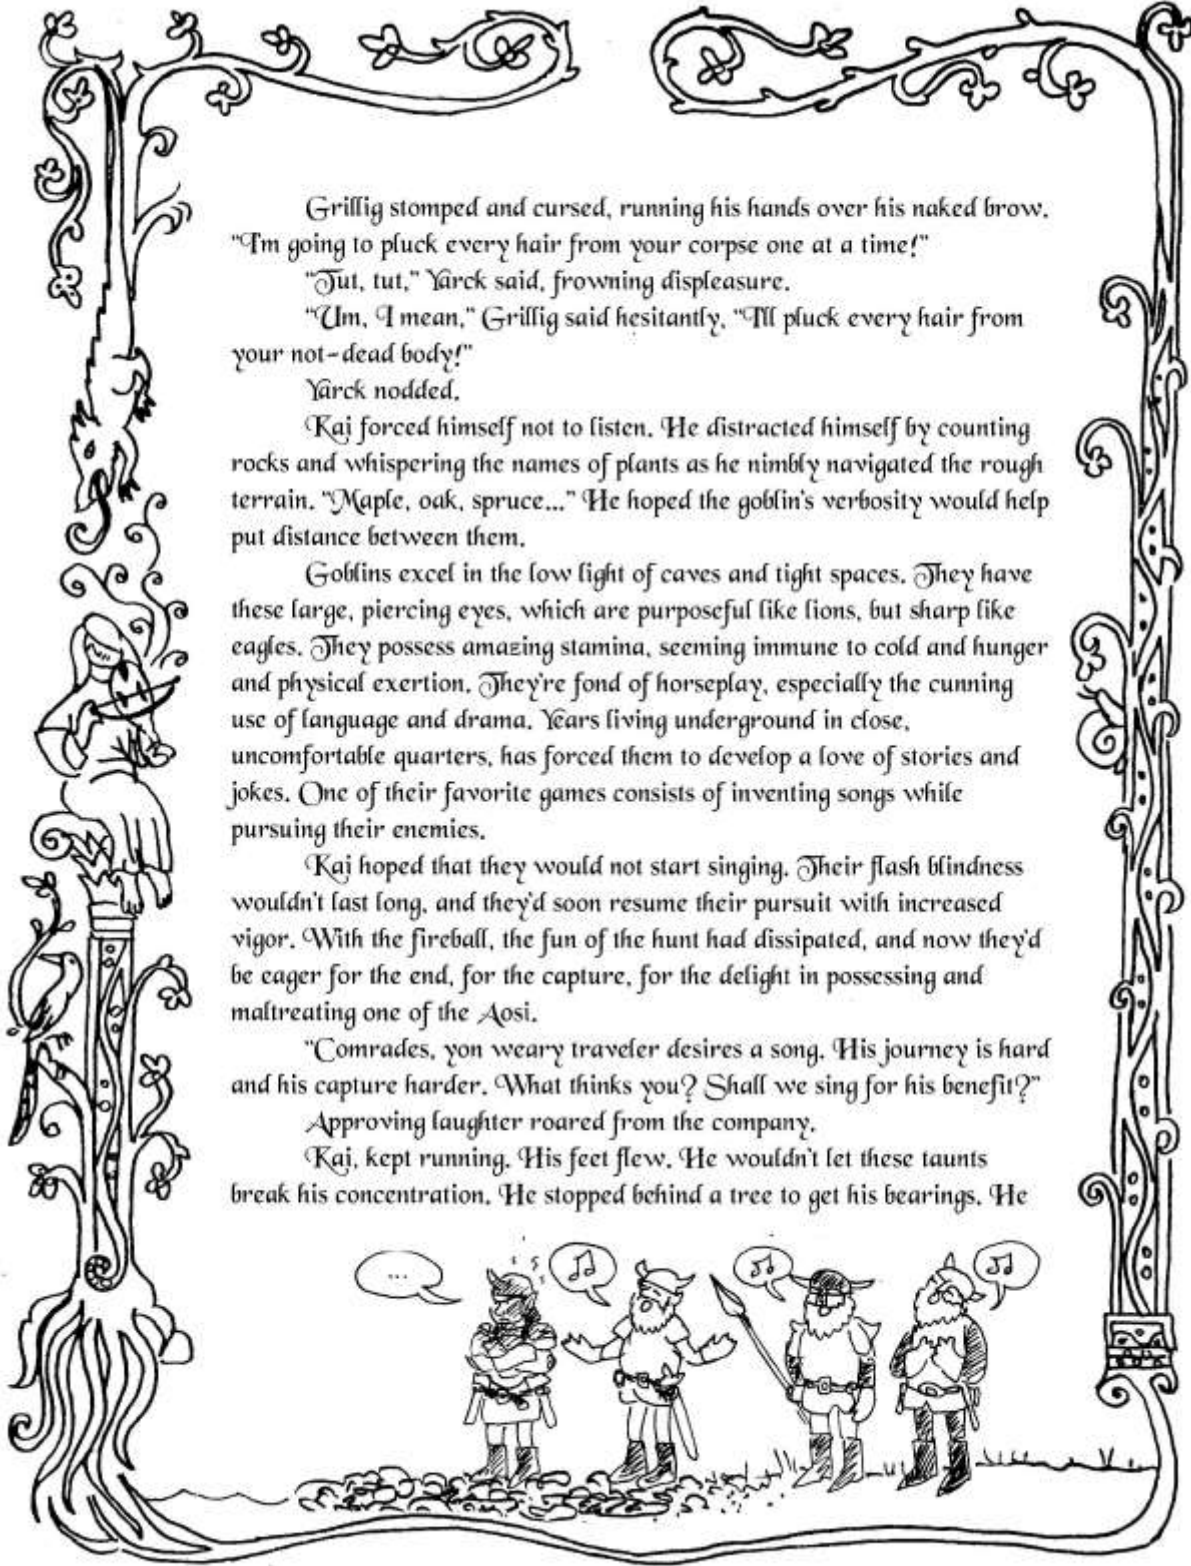 Grillig stomped and cursed, running his hands over his naked brow.
"I'm going to pluck every hair from your corpse one at a time!"
"Tut, tut," Yarck said, frowning displeasure.
"Um, I mean," Grillig said hesitantly, "I'll pluck every hair from
your not-dead body!"
Yarck nodded.
Kai forced himself not to listen. He distracted himself by counting
rocks and whispering the names of plants as he nimbly navigated the rough
terrain. "Maple, oak, spruce..." He hoped the goblin's verbosity would help
put distance between them.
Goblins excel in the low light of caves and tight spaces. They have
these large, piercing eyes, which are purposeful like lions, but sharp like
eagles. They possess amazing stamina, seeming immune to cold and hunger
and physical exertion. They're fond of horseplay, especially the cunning
use of language and drama. Years living underground in close,
uncomfortable quarters, has forced them to develop a love of stories and
jokes. One of their favorite games consists of inventing songs while
pursuing their enemies.
Kai hoped that they would not start singing. Their flash blindness
wouldn't last long, and they'd soon resume their pursuit with increased
vigor. With the fireball, the fun of the hunt had dissipated, and now they'd
be eager for the end, for the capture, for the delight in possessing and
maltreating one of the Aosi.
"Comrades, yon weary traveler desires a song. His journey is hard
and his capture harder. What thinks you? Shall we sing for his benefit?"
Approving laughter roared from the company.
Kai, kept running. His feet flew. He wouldn't let these taunts
break his concentration. He stopped behind a tree to get his bearings. He
...